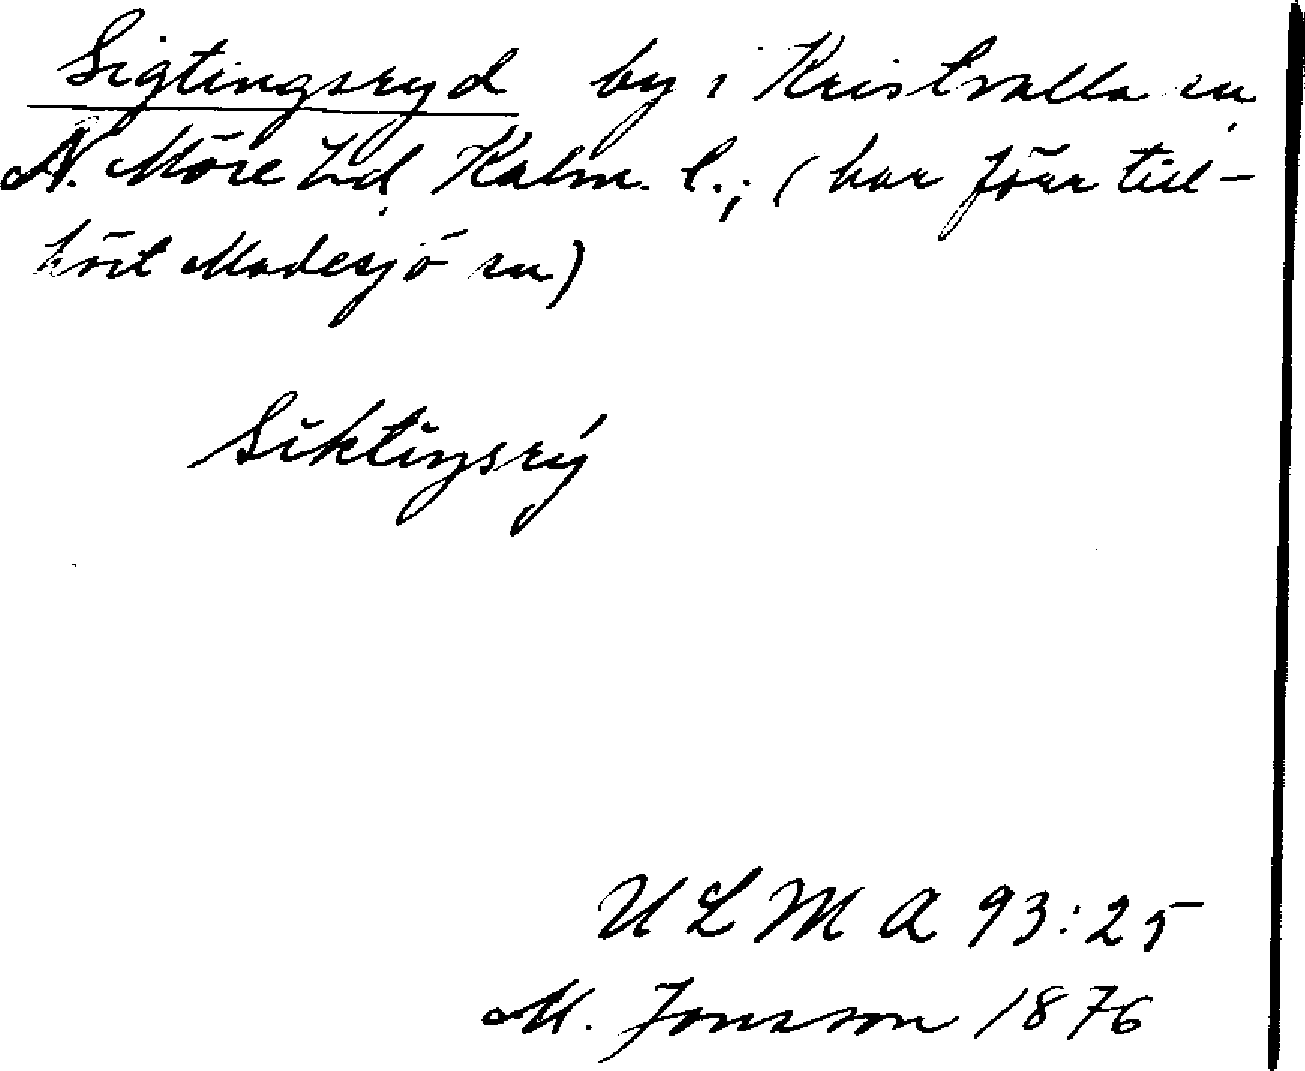 Sigtingsryd by i Kristvalla sn
N. Möre hd Kalm. l.; (har förr till-
hört Madesjö sn)
Siktingsrý
ULMA 93:25
M. Jonsson 1876